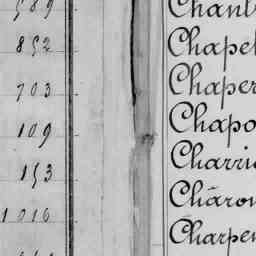 589 Chant
852 Chapel
703 Chaper
109 Chapo
153 Charri
1016 Charon
Charpen